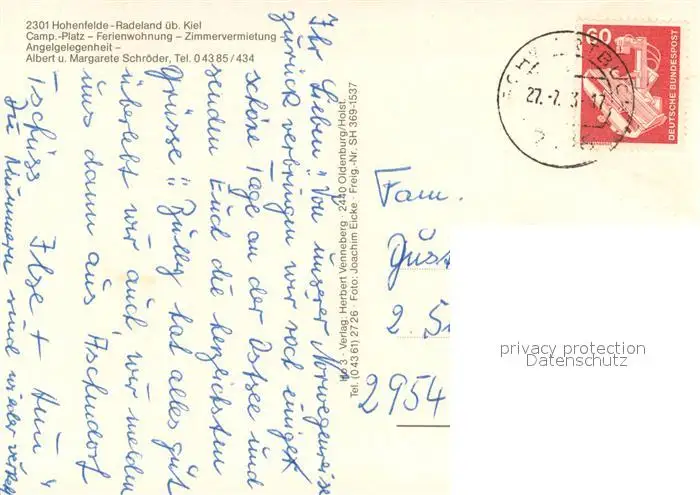 2301 Hohenfelde-Radeland üb. Kiel
Camp.-Platz – Ferienwohnung – Zimmervermietung
Angelgelegenheit –
Albert u. Margarete Schröder, Tel. 0 43 85 / 434
Ihr Lieben! Von unserer Norwegenreise
zurück verbringen wir noch einige
schöne Tage an der Ostsee und
senden Euch die herzlichsten
Grüsse!! Hat alles gut
überlebt wir auch, wir melden
uns dann aus Aschendorf
Tschüss Ilse +
sind wieder
Ho 3 · Verlag: Herbert Venneberg · 2440 Oldenburg/Holst.
Tel. (0 43 61) 27 26 · Foto: Joachim Eicke · Freig.-Nr. SH 369-1537
Fam.
2. 
2954
60
DEUTSCHE BUNDESPOST
27.-7.
privacy protection
Datenschutz